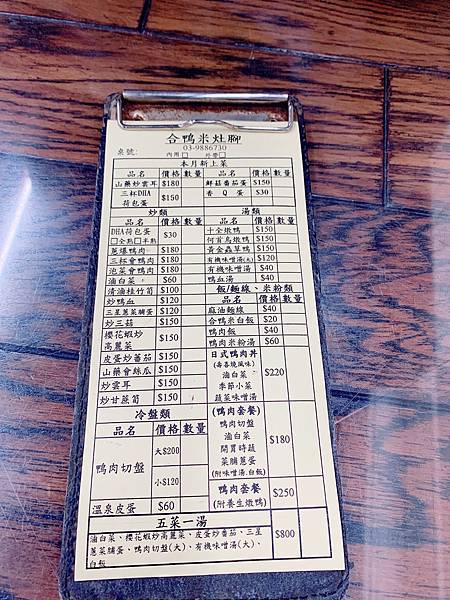 合鴨米灶腳
03-9886730
桌號: 內用□ 外帶□
本月新上菜
品名 價格 數量 品名 價格 數量
山藥炒雲耳 $180 鮮菇番茄蛋 $150
三杯DHA荷包蛋 $150 香Q蛋 $30
炒類
品名 價格 數量
DHA荷包蛋 □全熟□半熟 $30
蔥爆鴨肉 $180
三杯會鴨肉 $180
泡菜會鴨肉 $180
滷白菜 $60
清滷桂竹筍 $100
炒鴨血 $120
三星蔥菜脯蛋 $120
炒三菇 $150
櫻花蝦炒高麗菜 $150
皮蛋炒番茄 $150
山藥會絲瓜 $150
炒雲耳 $150
炒甘蔗筍 $150
冷盤類
品名 價格 數量
鴨肉切盤 大$200
小$120
溫泉皮蛋 $60
湯類
品名 價格 數量
十全燉鴨 $150
何首烏燉鴨 $150
黃金蟲草鴨 $150
有機味噌湯(大) $120
有機味噌湯 $40
鴨血湯 $40
飯/麵線、米粉類
品名 價格 數量
麻油麵線 $40
合鴨米白飯 $20
鴨肉飯 $40
鴨肉米粉湯 $60
日式鴨肉丼
(壽喜燒風味)
滷白菜
季節小菜
蔬菜味噌湯
$220
(鴨肉套餐)
鴨肉切盤
滷白菜
開胃時蔬
菜脯蔥蛋
(附味噌湯.白飯)
$180
鴨肉套餐
(附養生燉鴨)
$250
五菜一湯
滷白菜、櫻花蝦炒高麗菜、皮蛋炒番茄、三星
蔥菜脯蛋、鴨肉切盤(大)、有機味噌湯(大)、
白飯
$800